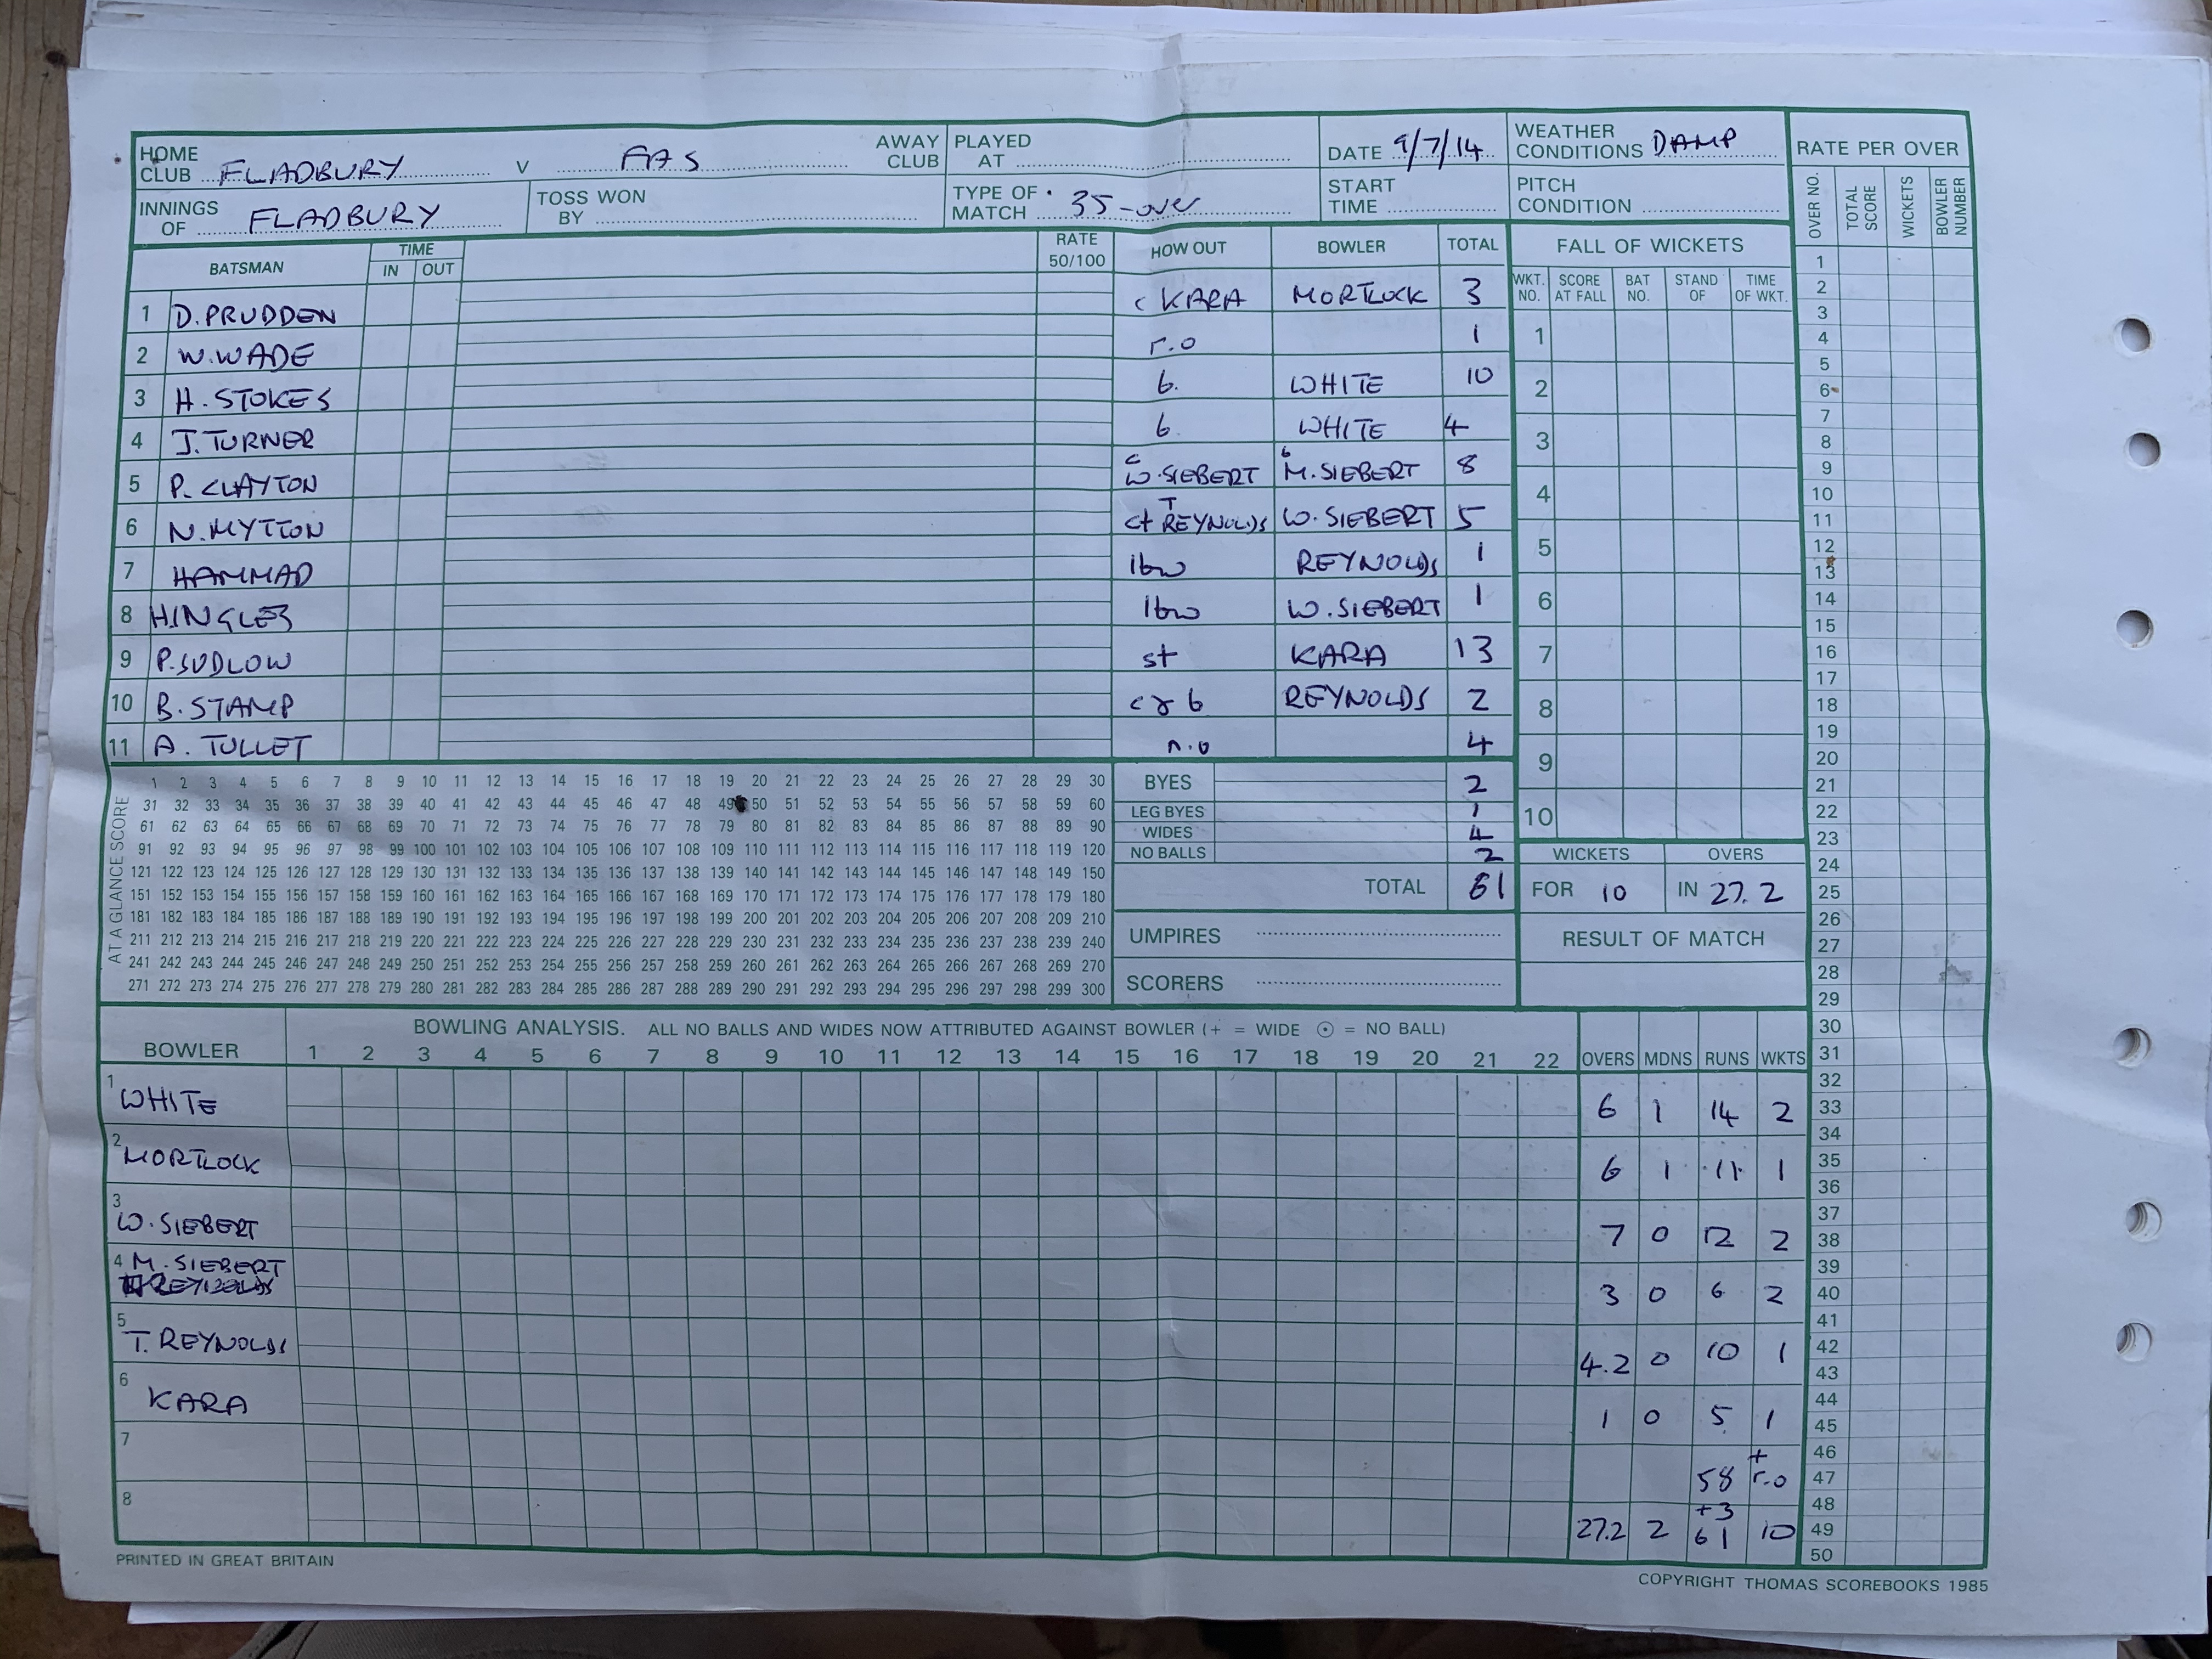 HOME CLUB FLADBURY V FAS AWAY CLUB PLAYED AT DATE 9/7/14 WEATHER CONDITIONS DAMP RATE PER OVER
INNINGS OF FLADBURY TOSS WON BY TYPE OF MATCH 35-over START TIME PITCH CONDITION
OVER NO. TOTAL SCORE WICKETS BOWLER NUMBER
BATSMAN TIME IN OUT RATE 50/100 HOW OUT BOWLER TOTAL
1 D. PRUDDEN c KARA MORTLOCK 3
2 W. WADE r.o 1
3 H. STOKES b. WHITE 10
4 J. TURNER b. WHITE 4
5 P. CLAYTON c W. SIEBERT b M. SIEBERT 8
6 N. MYTTON ct T REYNOLDS W. SIEBERT 5
7 HAMMAD lbw REYNOLDS 1
8 HINGLES lbw W. SIEBERT 1
9 P. SUDLOW st KARA 13
10 B. STAMP c & b REYNOLDS 2
11 A. TULLET n.o 4
FALL OF WICKETS
WKT. NO. SCORE AT FALL BAT NO. STAND OF TIME OF WKT.
1
2
3
4
5
6
7
8
9
10
AT A GLANCE SCORE
1 2 3 4 5 6 7 8 9 10 11 12 13 14 15 16 17 18 19 20 21 22 23 24 25 26 27 28 29 30
31 32 33 34 35 36 37 38 39 40 41 42 43 44 45 46 47 48 49 50 51 52 53 54 55 56 57 58 59 60
61 62 63 64 65 66 67 68 69 70 71 72 73 74 75 76 77 78 79 80 81 82 83 84 85 86 87 88 89 90
91 92 93 94 95 96 97 98 99 100 101 102 103 104 105 106 107 108 109 110 111 112 113 114 115 116 117 118 119 120
121 122 123 124 125 126 127 128 129 130 131 132 133 134 135 136 137 138 139 140 141 142 143 144 145 146 147 148 149 150
151 152 153 154 155 156 157 158 159 160 161 162 163 164 165 166 167 168 169 170 171 172 173 174 175 176 177 178 179 180
181 182 183 184 185 186 187 188 189 190 191 192 193 194 195 196 197 198 199 200 201 202 203 204 205 206 207 208 209 210
211 212 213 214 215 216 217 218 219 220 221 222 223 224 225 226 227 228 229 230 231 232 233 234 235 236 237 238 239 240
241 242 243 244 245 246 247 248 249 250 251 252 253 254 255 256 257 258 259 260 261 262 263 264 265 266 267 268 269 270
271 272 273 274 275 276 277 278 279 280 281 282 283 284 285 286 287 288 289 290 291 292 293 294 295 296 297 298 299 300
BYES 2
LEG BYES 1
WIDES 4
NO BALLS 2
TOTAL 61
WICKETS OVERS
FOR 10 IN 27.2
UMPIRES
SCORERS
RESULT OF MATCH
BOWLING ANALYSIS. ALL NO BALLS AND WIDES NOW ATTRIBUTED AGAINST BOWLER (+ = WIDE ⊙ = NO BALL)
BOWLER 1 2 3 4 5 6 7 8 9 10 11 12 13 14 15 16 17 18 19 20 21 22 OVERS MDNS RUNS WKTS
1 WHITE 6 1 14 2
2 MORTLOCK 6 1 11 1
3 W. SIEBERT 7 0 12 2
4 M. SIEBERT 3 0 6 2
5 T. REYNOLDS 4.2 0 10 1
6 KARA 1 0 5 1
7 58 + r.o
8 +3
27.2 2 61 10
1
2
3
4
5
6
7
8
9
10
11
12
13
14
15
16
17
18
19
20
21
22
23
24
25
26
27
28
29
30
31
32
33
34
35
36
37
38
39
40
41
42
43
44
45
46
47
48
49
50
PRINTED IN GREAT BRITAIN
COPYRIGHT THOMAS SCOREBOOKS 1985